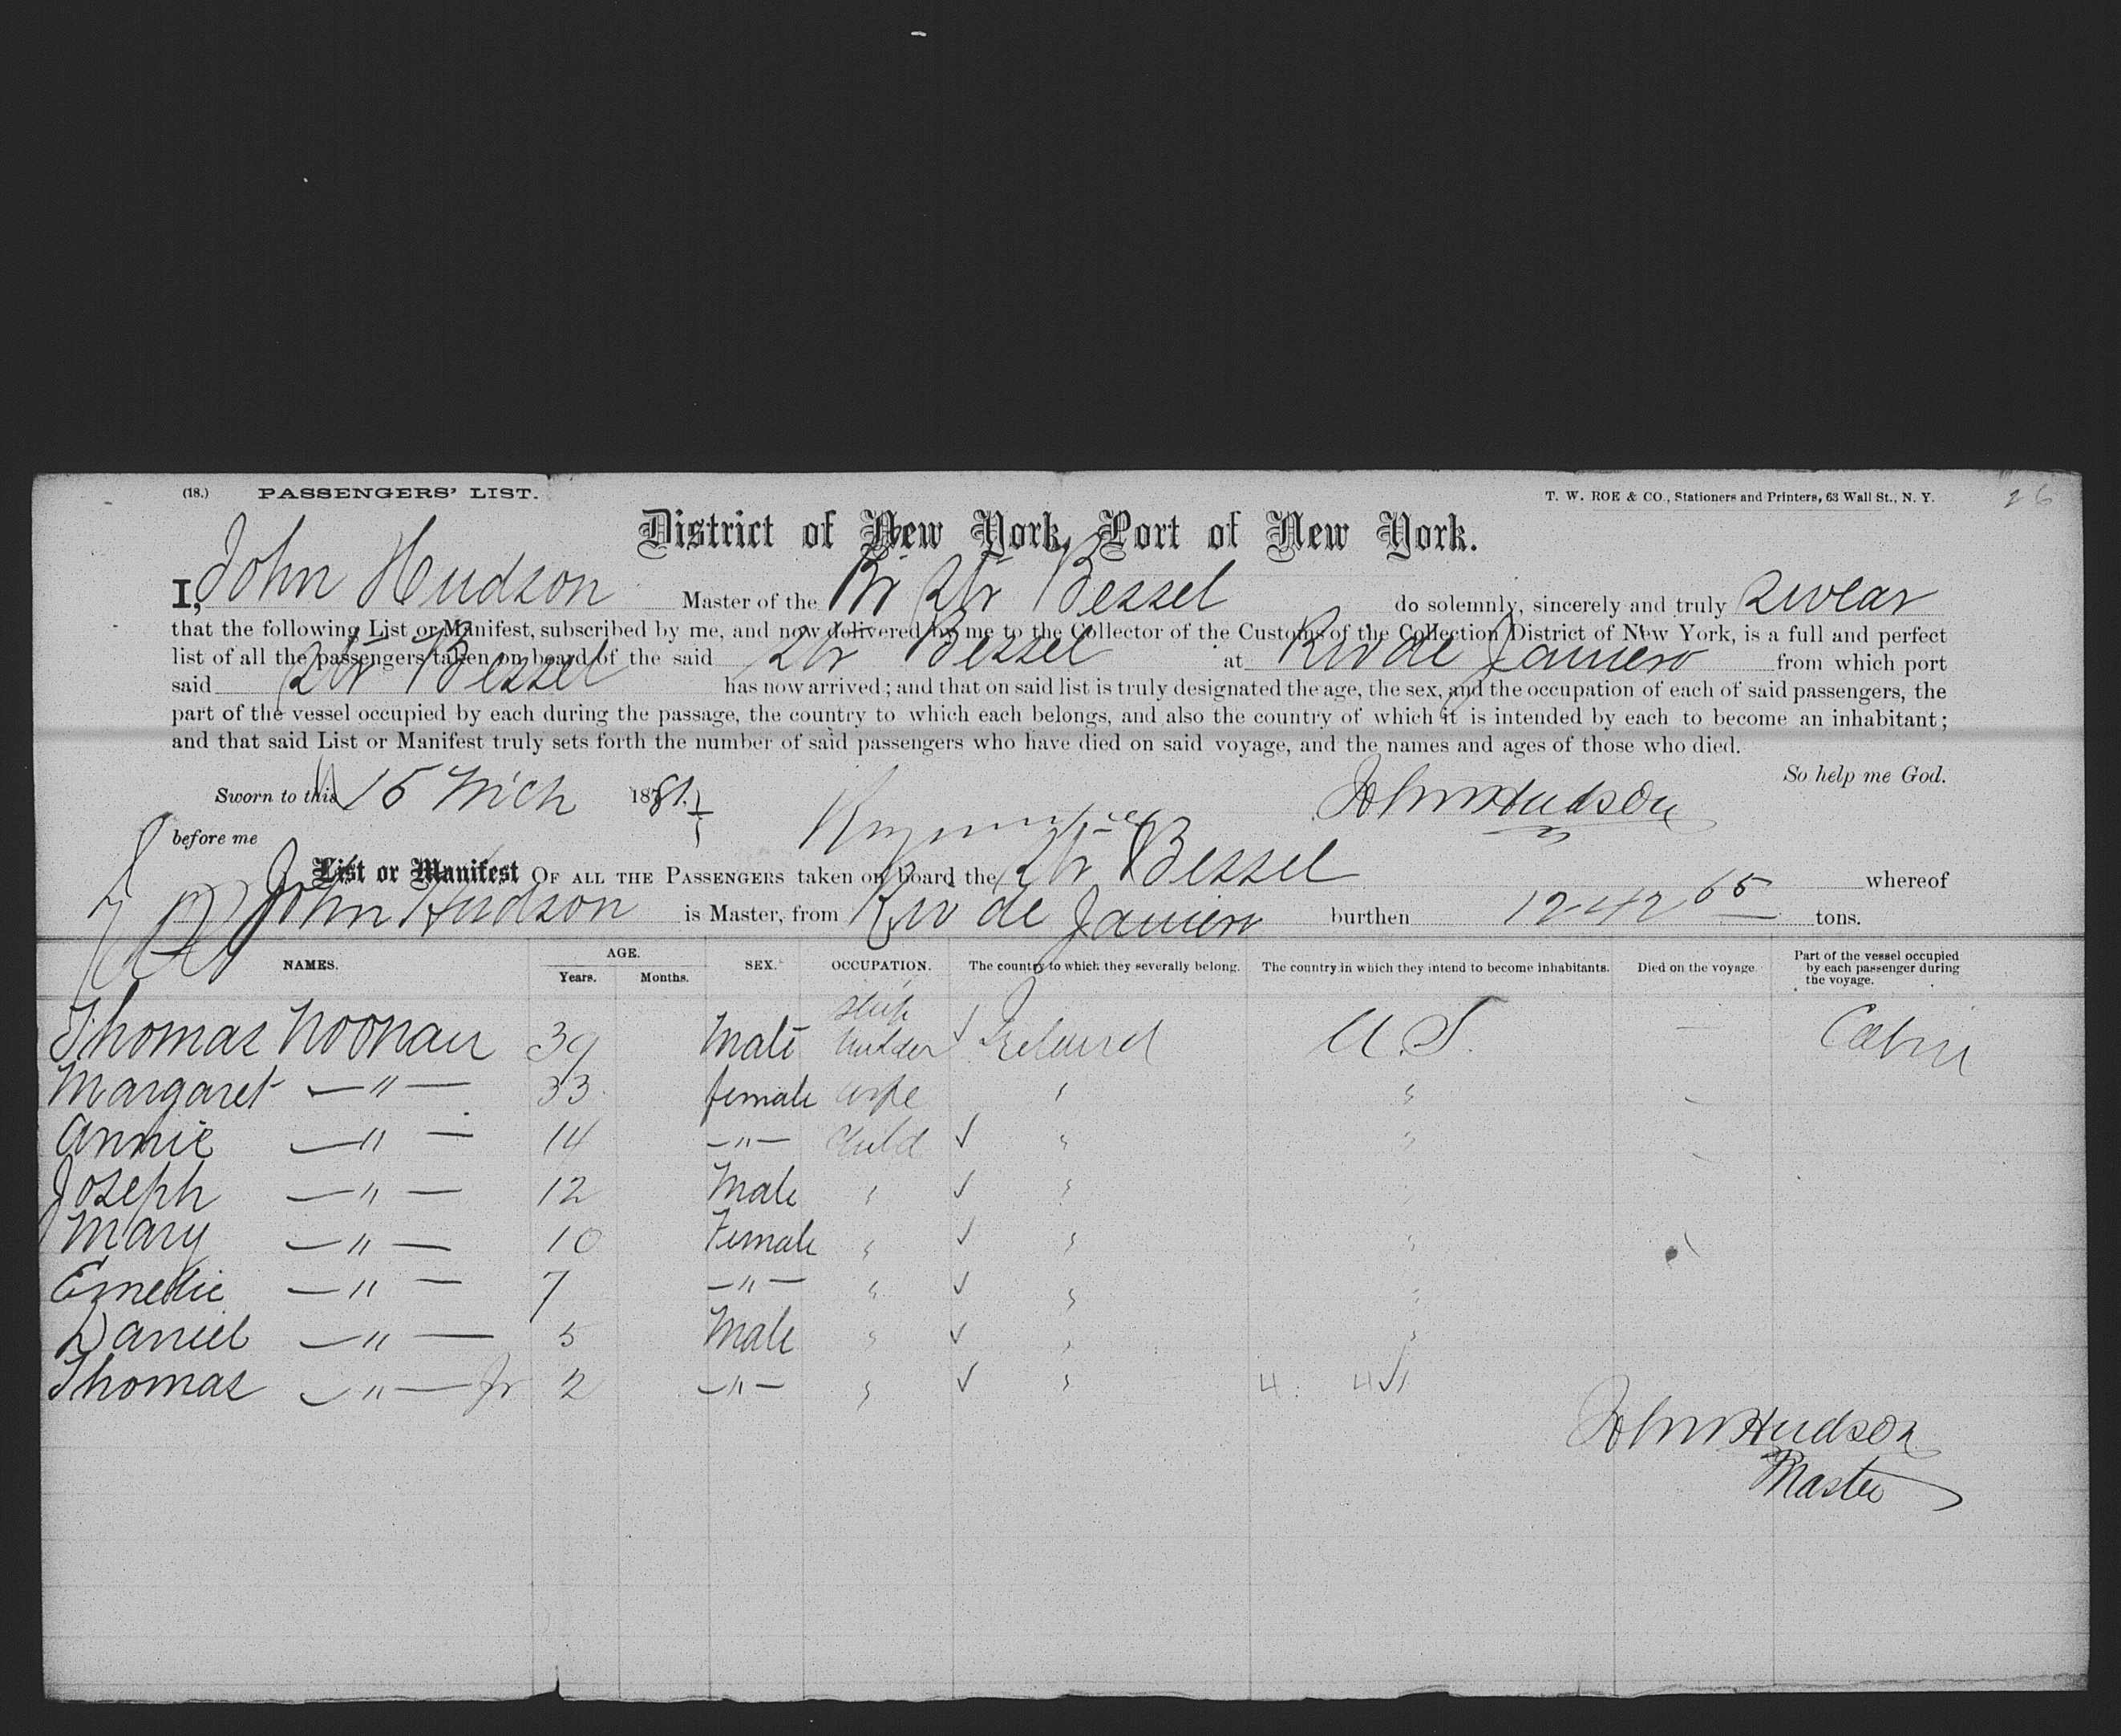 (18.) PASSENGERS' LIST. T. W. ROE & CO., Stationers and Printers, 63 Wall St., N. Y. 26
District of New York, Port of New York.
I, John Hudson Master of the Br Str Bessel do solemnly, sincerely and truly swear
that the following List or Manifest, subscribed by me, and now delivered by me to the Collector of the Customs of the Collection District of New York, is a full and perfect
list of all the passengers taken on board of the said Str Bessel at Rio de Janiero from which port
said Str Bessel has now arrived; and that on said list is truly designated the age, the sex, and the occupation of each of said passengers, the
part of the vessel occupied by each during the passage, the country to which each belongs, and also the country of which it is intended by each to become an inhabitant;
and that said List or Manifest truly sets forth the number of said passengers who have died on said voyage, and the names and ages of those who died.
So help me God.
Sworn to this 15 Mch 1881. John Hudson
before me
List or Manifest OF ALL THE PASSENGERS taken on board the Str Bessel whereof
John Hudson is Master, from Rio de Janiero burthen 1242 65 tons.
NAMES. AGE. Years. Months. SEX. OCCUPATION. The country to which they severally belong. The country in which they intend to become inhabitants. Died on the voyage. Part of the vessel occupied by each passenger during the voyage.
Thomas Noonan 39 Male ship builder ✓ Ireland U.S. — Cabin
Margaret — " — 33 female wife " "
Annie — " — 14 — " — child ✓ " "
Joseph — " — 12 Male " ✓ "
Mary — " — 10 Female " ✓ " "
Emelie — " — 7 — " — " ✓ " "
Daniel — " — 5 Male " ✓ " "
Thomas — " — Jr 2 — " — " ✓ " 4. 4 ✓
John Hudson
Master